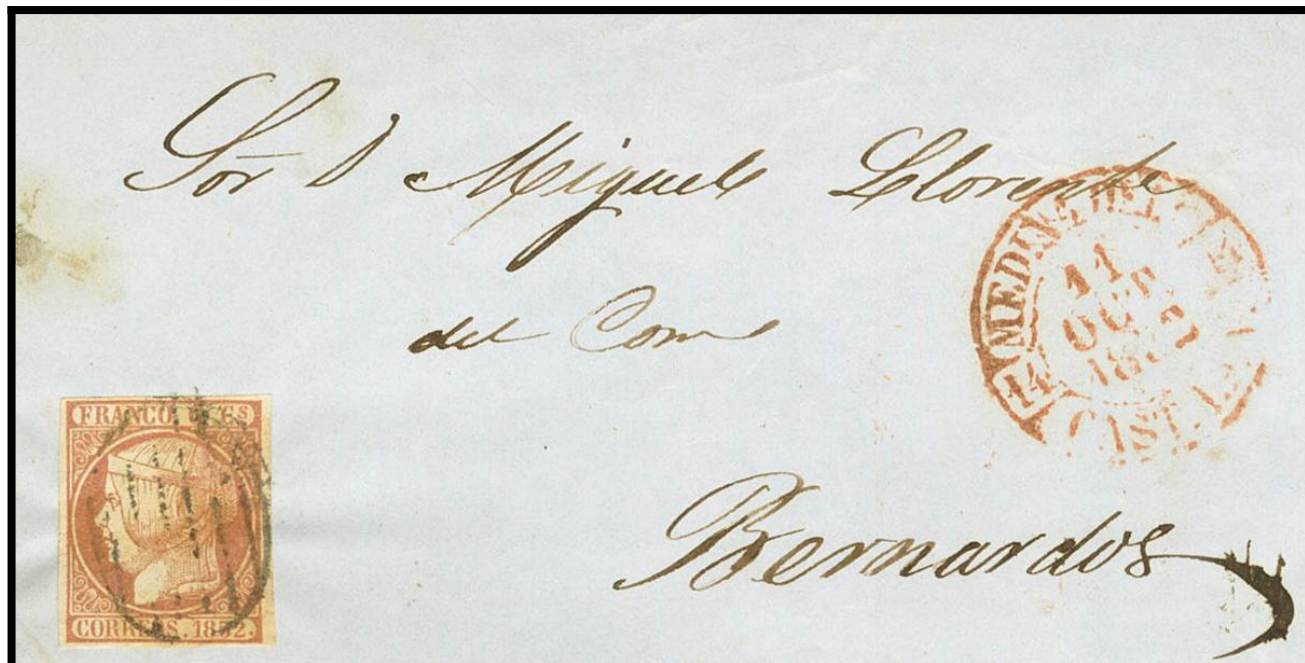 Sor D Miguel Llorente
del Com
Bernardos
MEDINA DEL CAMPO
11
OCT.
1852
14 CAST. LA V.
FRANCO 6 Cs
CORREOS. 1852.